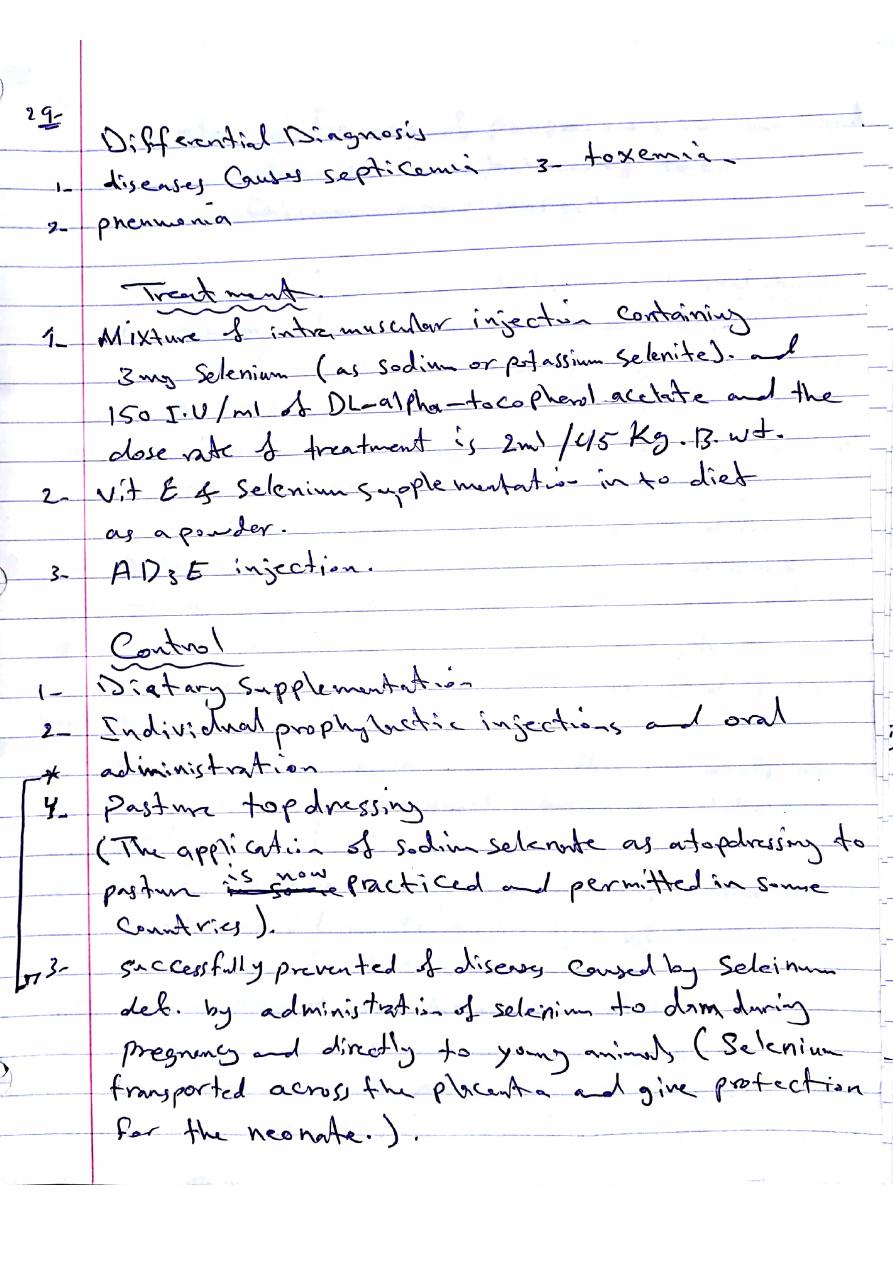 29-
Differential Diagnosis
1- diseases Causes septicemia 3- toxemia.
2- pneumonia
Treatment.
1- Mixture of intramuscular injection containing
3mg Selenium (as sodium or potassium selenite). and
150 I.U/ml of DL-alpha-tocopherol acetate and the
dose rate of treatment is 2ml/45 Kg.B.wt.
2- vit E & Selenium supplementation in to diet
as a powder.
3- AD3E injection.
Control
1- Diatary supplementation
2- Individual prophylactic injections and oral
* administration
4- Pasture topdressing
(The application of sodium selenate as atopdressing to
pasture is now practiced and permitted in some
Countries).
3- successfully prevented of diseases caused by Seleinum
def. by administration of selenium to dam during
pregnency and directly to young animals (Selenium
transported across the placenta and give protection
for the neonate.).